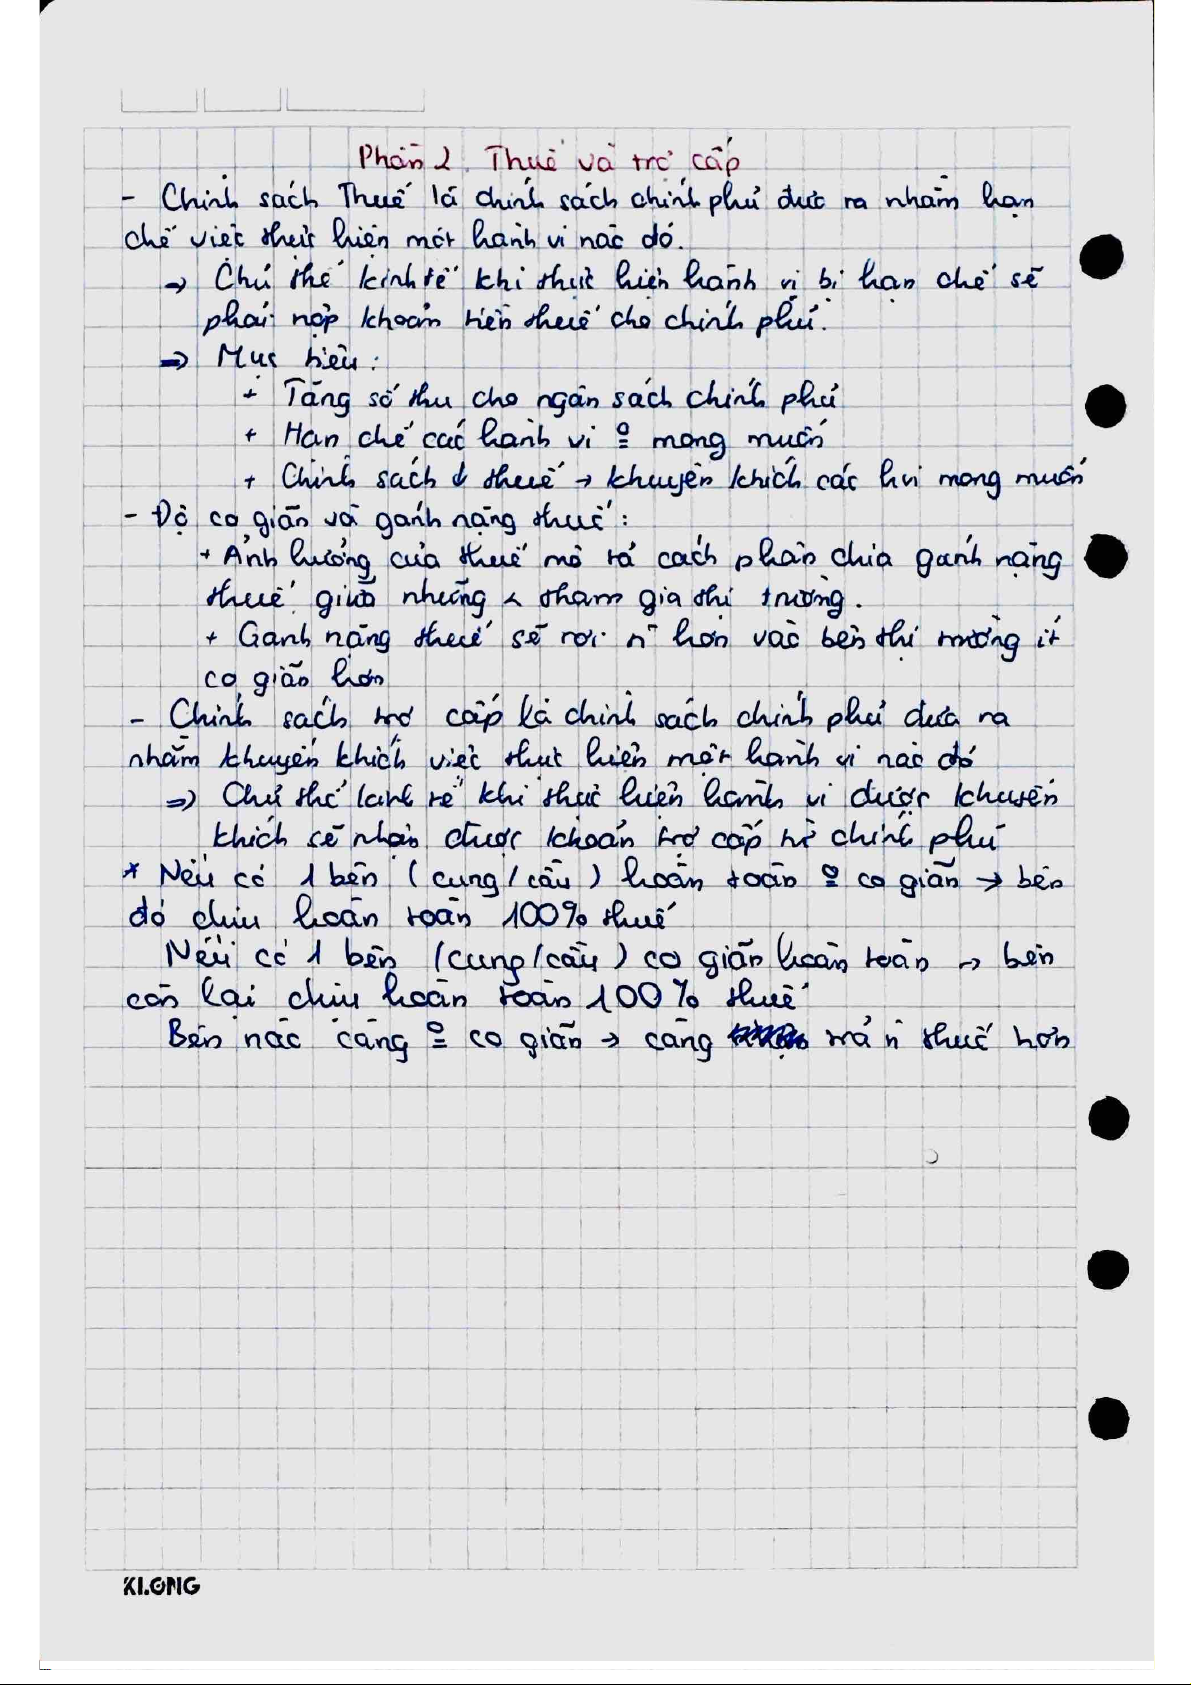 Phần 2. Thuế và trợ cấp
- Chính sách Thuế là chính sách chính phủ đưa ra nhằm hạn
chế việc thực hiện một hành vi nào đó.
⇒ Chủ thể kinh tế khi thực hiện hành vi bị hạn chế sẽ
phải nộp khoản tiền thuế cho chính phủ.
⇒ Mục tiêu:
+ Tăng số thu cho ngân sách chính phủ
+ Hạn chế các hành vi º mong muốn
+ Chính sách ↓ thuế → khuyến khích các hvi mong muốn
- Độ co giãn và gánh nặng thuế:
+ Ảnh hưởng của thuế mô tả cách phân chia gánh nặng
thuế giữa những tham gia thị trường.
+ Gánh nặng thuế sẽ rơi n` hơn vào bên thị trường ít
co giãn hơn
- Chính sách trợ cấp là chính sách chính phủ đưa ra
nhằm khuyến khích việc thực hiện một hành vi nào đó
⇒ Chủ thể kinh tế khi thực hiện hành vi được khuyến
khích sẽ nhận được khoản trợ cấp từ chính phủ
* Nếu có 1 bên (cung/cầu) hoàn toàn º co giãn → bên
đó chịu hoàn toàn 100% thuế
Nếu có 1 bên (cung/cầu) co giãn hoàn toàn → bên
còn lại chịu hoàn toàn 100% thuế
Bên nào càng º co giãn → càng trả n` thuế hơn
KLONG